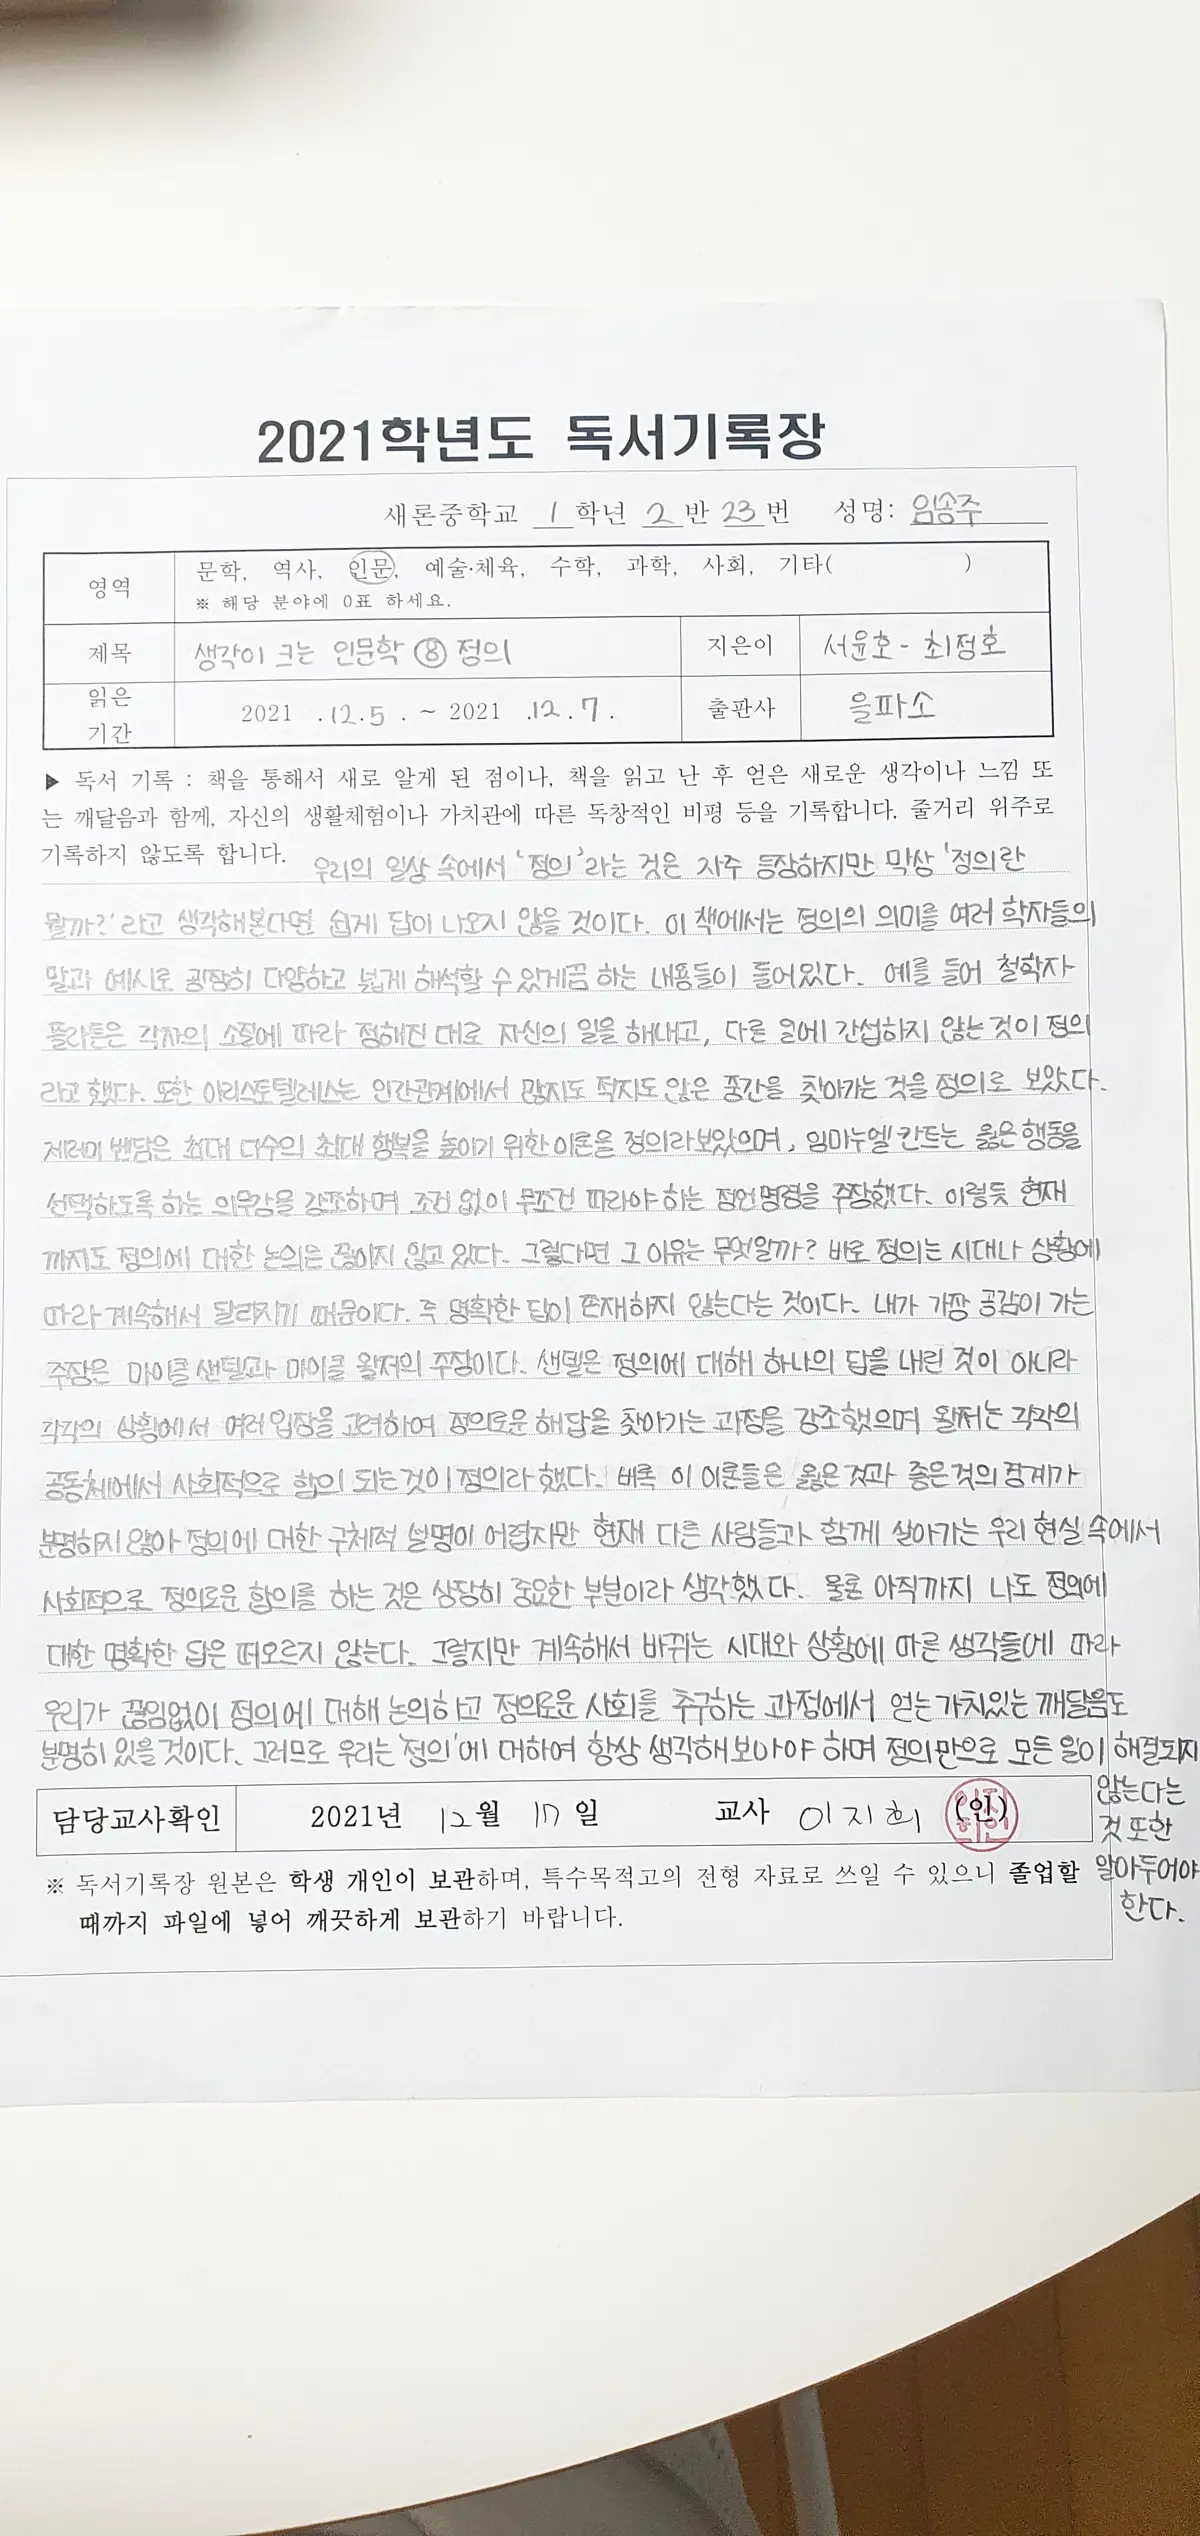 2021학년도 독서기록장
새론중학교 1 학년 2 반 23 번 성명: 임송주
영역 문학, 역사, 인문, 예술·체육, 수학, 과학, 사회, 기타( )
※ 해당 분야에 0표 하세요.
제목 생각이 크는 인문학 ⑧ 정의 지은이 서윤호 - 최정호
읽은 기간 2021 .12.5 . ~ 2021 .12.7. 출판사 을파소
▶ 독서 기록 : 책을 통해서 새로 알게 된 점이나, 책을 읽고 난 후 얻은 새로운 생각이나 느낌 또
는 깨달음과 함께, 자신의 생활체험이나 가치관에 따른 독창적인 비평 등을 기록합니다. 줄거리 위주로
기록하지 않도록 합니다. 우리의 일상 속에서 '정의'라는 것은 자주 등장하지만 막상 '정의란
뭘까?'라고 생각해본다면 쉽게 답이 나오지 않을 것이다. 이 책에서는 정의의 의미를 여러 학자들의
말과 예시로 굉장히 다양하고 넓게 해석할 수 있게끔 하는 내용들이 들어있다. 예를 들어 철학자
플라톤은 각자의 소질에 따라 정해진 대로 자신의 일을 해내고, 다른 일에 간섭하지 않는 것이 정의
라고 했다. 또한 아리스토텔레스는 인간관계에서 많지도 적지도 않은 중간을 찾아가는 것을 정의로 보았다.
제러미 벤담은 최대 다수의 최대 행복을 높이기 위한 이론을 정의라보았으며, 임마누엘 칸트는 옳은 행동을
선택하도록 하는 의무감을 강조하며 조건 없이 무조건 따라야 하는 정언명령을 주장했다. 이렇듯 현재
까지도 정의에 대한 논의는 끊이지 않고 있다. 그렇다면 그 이유는 무엇일까? 바로 정의는 시대나 상황에
따라 계속해서 달라지기 때문이다. 즉 명확한 답이 존재하지 않는다는 것이다. 내가 가장 공감이 가는
주장은 마이클 샌델과 마이클 왈저의 주장이다. 샌델은 정의에 대해 하나의 답을 내린 것이 아니라
각각의 상황에서 여러 입장을 고려하여 정의로운 해답을 찾아가는 과정을 강조했으며 왈저는 각각의
공동체에서 사회적으로 합의 되는 것이 정의라 했다. 비록 이 이론들은 옳은 것과 좋은 것의 경계가
분명하지 않아 정의에 대한 구체적 설명이 어렵지만 현재 다른 사람들과 함께 살아가는 우리 현실 속에서
사회적으로 정의로운 합의를 하는 것은 상당히 중요한 부분이라 생각했다. 물론 아직까지 나도 정의에
대한 명확한 답은 떠오르지 않는다. 그렇지만 계속해서 바뀌는 시대와 상황에 따른 생각들에 따라
우리가 끊임없이 정의에 대해 논의하고 정의로운 사회를 추구하는 과정에서 얻는 가치있는 깨달음도
분명히 있을 것이다. 그러므로 우리는 '정의'에 대하여 항상 생각해보아야 하며 정의만으로 모든 일이 해결되지
않는다는
것 또한
알아두어야
한다.
담당교사확인 2021년 12월 17일 교사 이지희 (인)
※ 독서기록장 원본은 학생 개인이 보관하며, 특수목적고의 전형 자료로 쓰일 수 있으니 졸업할
때까지 파일에 넣어 깨끗하게 보관하기 바랍니다.